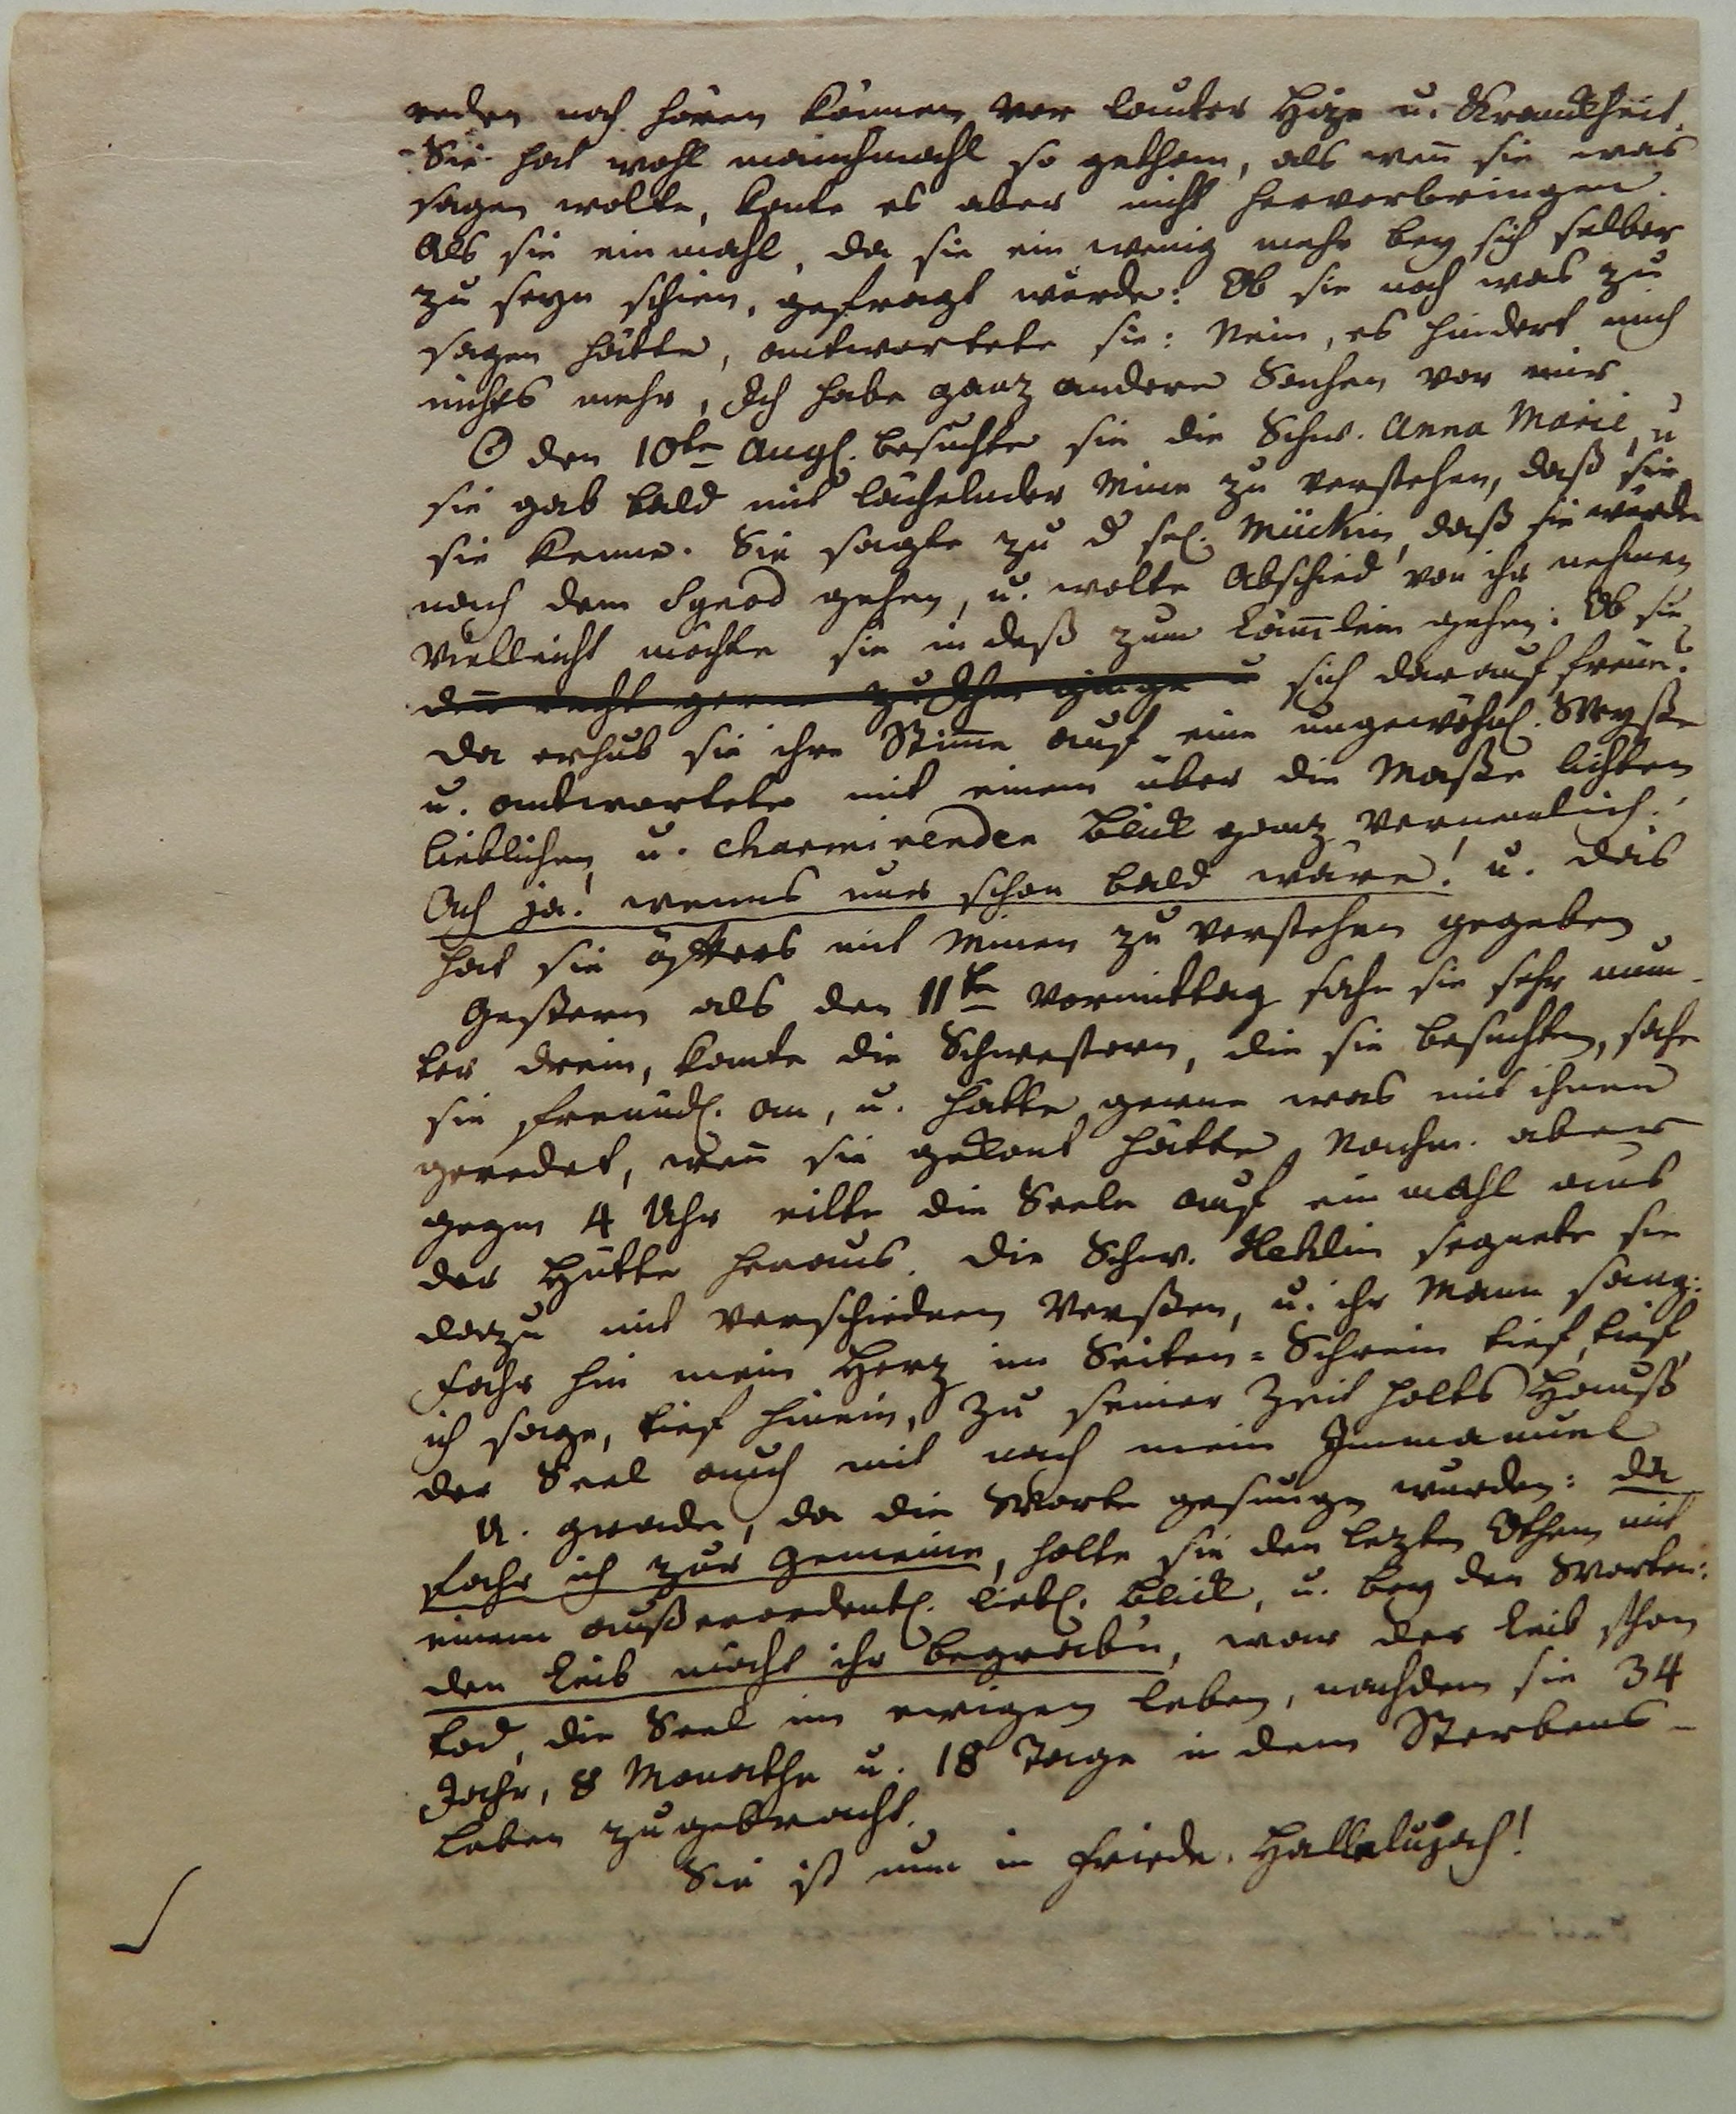 reden noch hören können vor lauter Hize u. Krankheit.
Sie hat wohl manchmahl so gethan, als wen̅ sie was
sagen wolte, konte es aber nicht hervorbringen.
Als sie einmahl, da sie ein wenig mehr bey sich selber
zu seyn schien, gefragt wurde: Ob sie noch was zu
sagen hätte, antwortete sie: Nein, es hindert mich
nichts mehr, Ich habe ganz andere Sachen vor mir.
☉ den 10te Aug. besuchte sie die Schw. Anna Marie, u
sie gab bald mit lächelnder Mine zu verstehen, daß sie
sie kenne. Sie sagte zu d sel. Mückin, daß sie würde
nach dem Synod gehen, u. wolte Abschied von ihr nehmen
vielleicht möchte sie indeß zum Läm̅lein gehen: Ob sie
den̅ recht gerne zu Ihm ginge u sich darauf freue?
Da erhub sie ihre Stim̅e auf eine ungewöhnl. Weyse
u. antwortete mit einem über die Maße lichten
lieblichen u. charmirenden Blick ganz vernemlich:
Ach ja! wenns nur schon bald wäre! u. das
hat sie öffters mit Minen zu verstehen gegeben.
Gestern als den 11te Vormittag sahe sie sehr mun-
ter drein, kante die Schwestern, die sie besuchten, sahe
sie freundl. an, u. hätte gerne was mit ihnen
geredet, wen̅ sie gekont hätte, Nachm. aber
gegen 4 Uhr eilte die Seele auf einmahl aus
der Hütte heraus. Die Schw. Hehlin segnete sie
dazu mit verschiednen Versen, u. ihr Mann sang:
Fahr hin mein Herz im Seiten-Schrein tief, tief,
ich sage, tief hinein, Zu seiner Zeit holts Hauß
der Seel auch mit nach mein Immanuel
U. grade, da die Worte gesungen wurden: da
fahr ich zur Gemeine, holte sie den lezten Othem mit
einem außerordentl. liebl. Blick, u. bey den Worten:
den Leib mögt ihr begrab'n, war der Leib schon
tod, die Seel im ewigen Leben, nachdem sie 34
Jahr, 8 Monathe u. 18 Tage in dem Sterbens-
leben zugebracht.
Sie ist nun in Friede. Hallelujah!